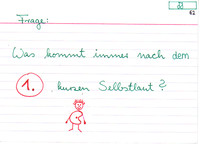 22
61
Frage:
Was kommt immer nach dem
1. kurzen Selbstlaut?